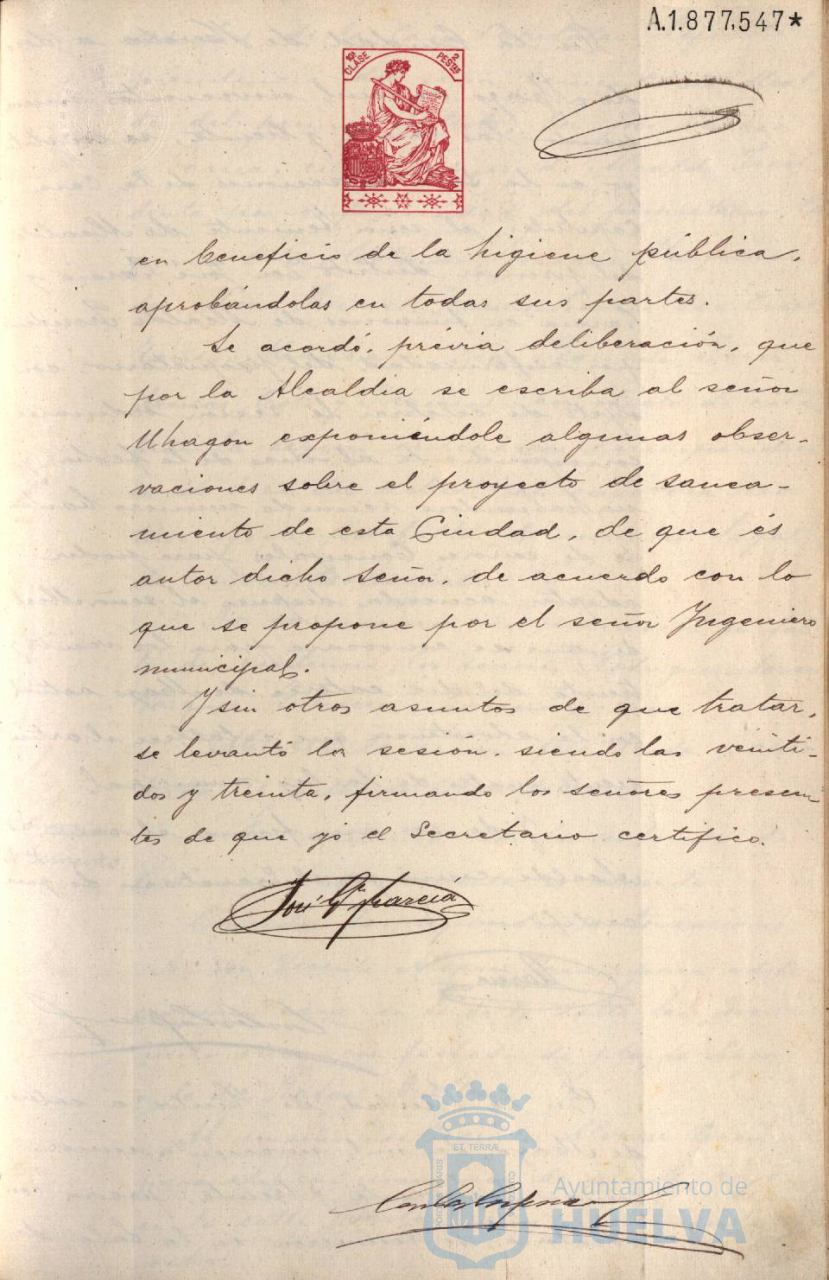 A.1.877.547*
10ª CLASE 2 PESTAS
en beneficio de la higiene pública,
aprobándolas en todas sus partes.
Se acordó, prévia deliberación, que
por la Alcaldia se escriba al señor
Uhagon exponiéndole algunas obser-
vaciones sobre el proyecto de sanea-
miento de esta Ciudad, de que és
autor dicho señor, de acuerdo con lo
que se propone por el señor Ingeniero
municipal.
Y sin otros asuntos de que tratar,
se levantó la sesión, siendo las veinti-
dos y treinta, firmando los señores presen-
tes de que yo el Secretario certifico.
José García
ET TERRÆ
Ayuntamiento de
HUELVA